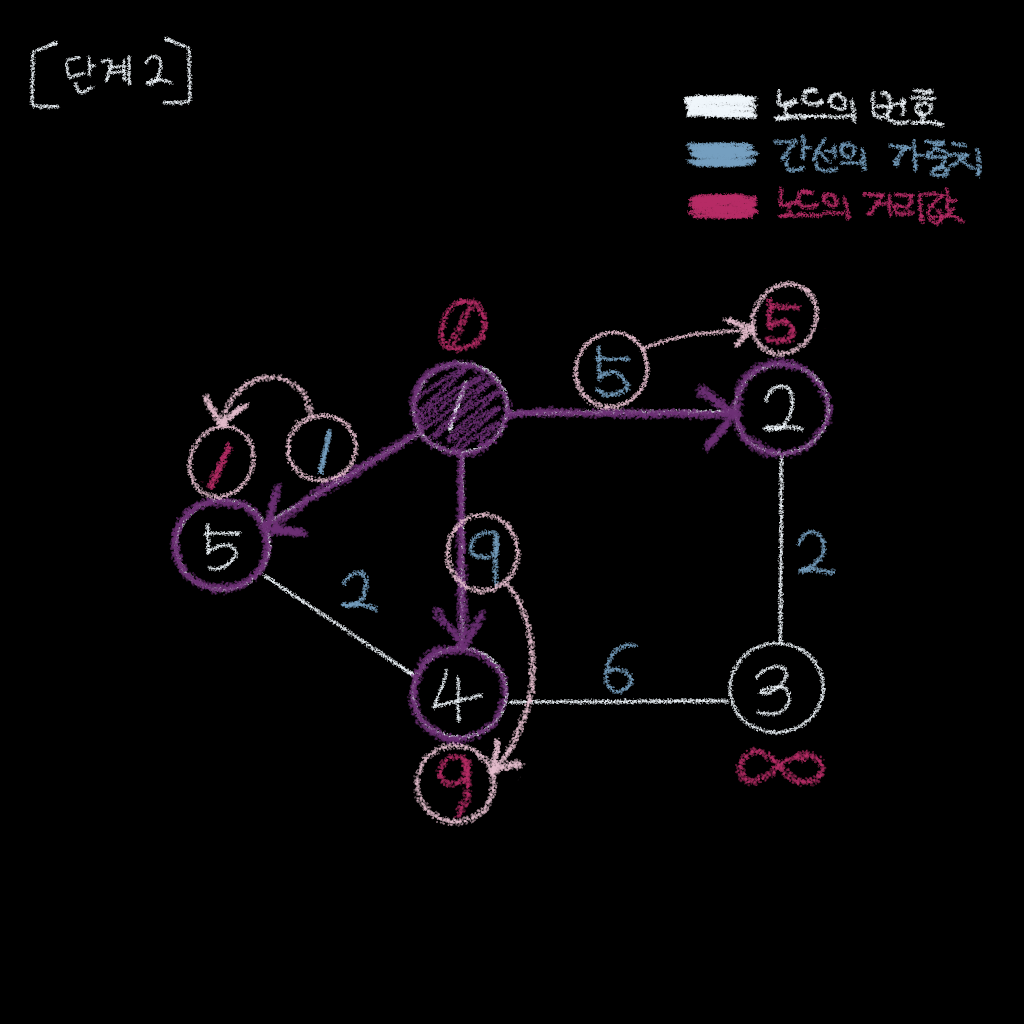 [단계 2]
노드의 번호
간선의 가중치
노드의 거리값
0
5
5
1
2
1
1
5
9
2
2
4
6
3
9
∞